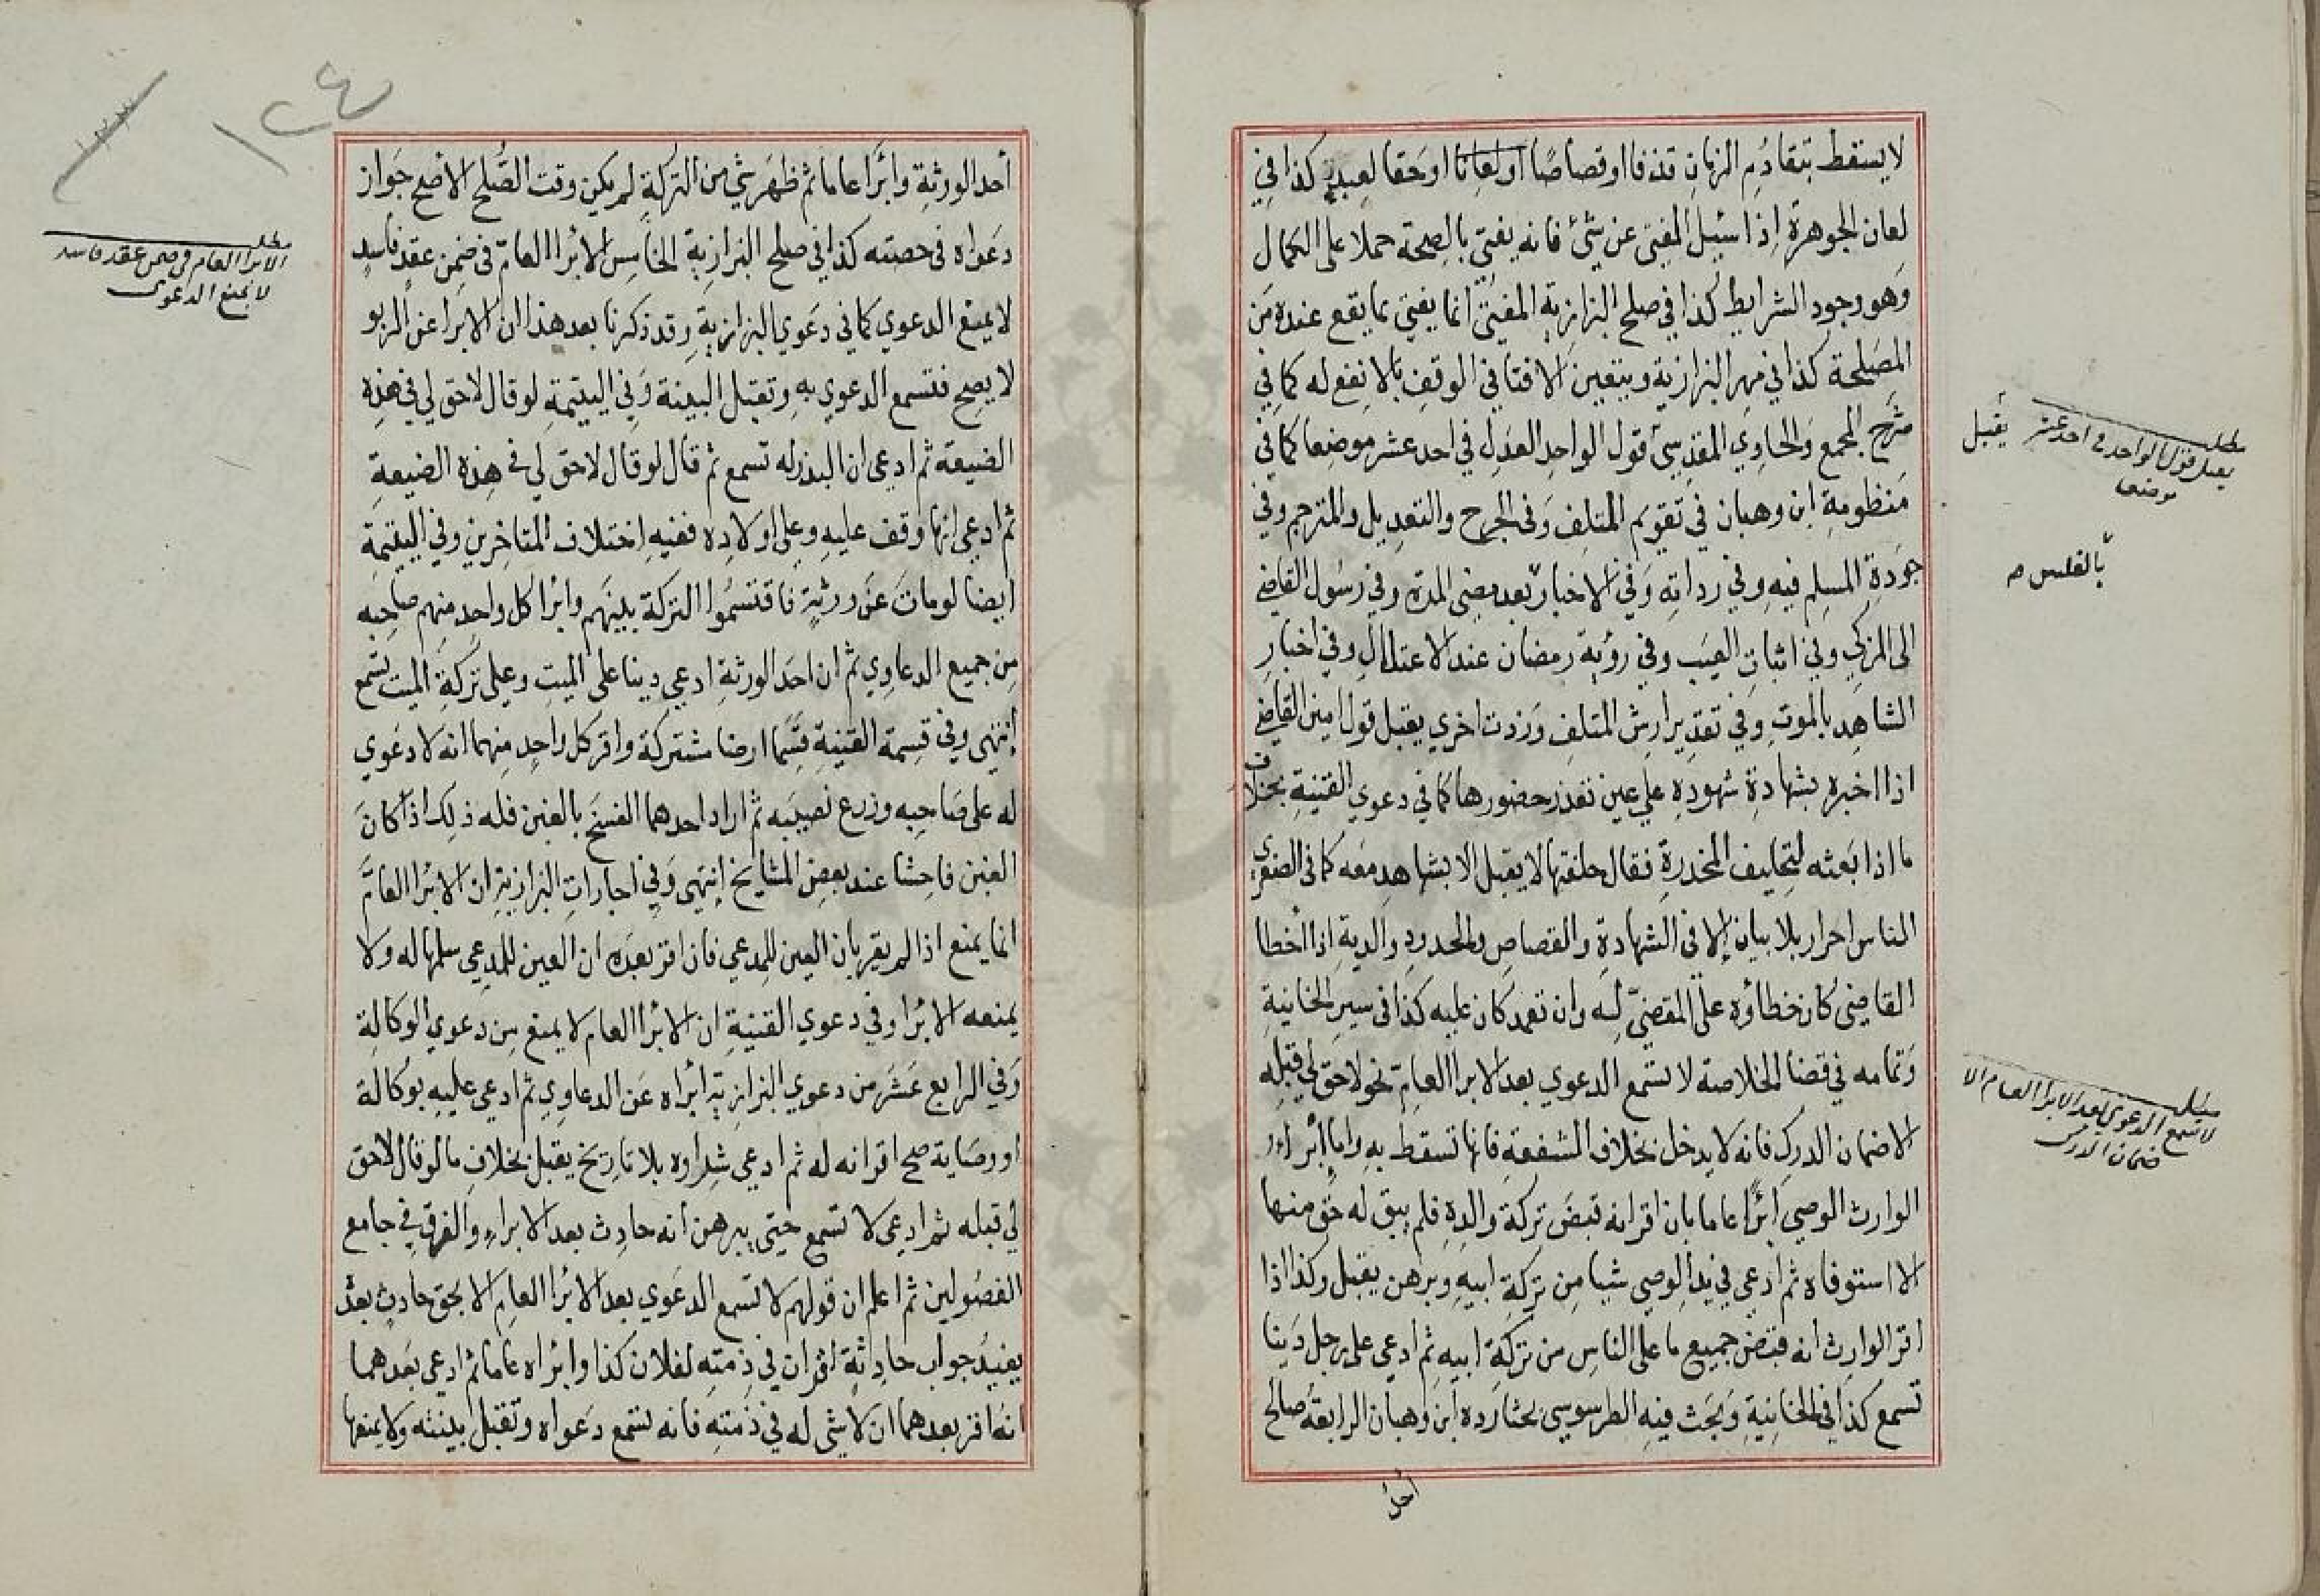 لا يسقط بتقادم الزمان قذفا او قصاصا او لعانا او حقا لعبد كذا في
لعان الجوهرة اذا سئيل المفتى عن شئ فانه يفتي بالصحة حملا على الكمال
وهو وجود الشرايط كذا في صلح البزازية المفتى انما يفتي بما يقع عنده من
المصلحة كذا في مهر البزازية ويتعين الافتا في الوقف بالانفع له كما في
شرح المجمع والحاوي المقدسي قول الواحد العدل في احد عشر موضعا كما في
منظومة ابن وهبان في تقويم المتلف وفي الجرح والتعديل والمترجم وفي
جودة المسلم فيه وفي رداته وفي الاخبار بعد مضي المدة وفي رسول القاضي
الى المزكي وفي اثبات العيب وفي رؤية رمضان عند الاعتلال وفي اخبار
الشاهد بالموت وفي تقدير ارش المتلف وزدت اخري يقبل قول امين القاضي
اذا اخبره بشهادة شهوده علي عين تعذر حضورها كما في دعوي القنية بخلاف
ما اذا بعثه لتحليف المخدرة فقال حلفتها لا يقبل الا بشاهد معه كما في الصغري
الناس احرار بلا بيان إلا في الشهادة والقصاص والحدود والدية اذا أخطا
القاضي كان خطاؤه على المقضي له وان تعمد كان عليه كذا في سير الخانية
وتمامه في قضا الخلاصة لا تسمع الدعوي بعد الابرا العام نحو لا حق لي قبله
الا ضمان الدرك فانه لا يدخل بخلاف الشفعة فانها تسقط به واما إبراء
الوارث الوصي إبرا عاما بان اقر انه قبض تركة والده فلم يبق له حق منها
الا استوفاه ثم ادعي في يد الوصي شيا من تركة ابيه وبرهن يقبل وكذا اذا
اقر الوارث انه قبض جميع ما على الناس من تركة ابيه ثم ادعي على رجل دينا
تسمع كذا في الخانية وبحث فيه الطرسوسي بحثا رده ابن وهبان الرابعة صالح
أحد
مطلب
يقبل قول الواحد في احد عشر
موضعا
يقبل
بالفلس صح
مطلب
لا تسمع الدعوي بعد الابرا العام الا
ضمان الدرك
١٢٤
أحد الورثة وابرا عاما ثم ظهر شي من التركة لم يكن وقت الصلح الأصح جواز
دعواه في حصته كذا في صلح البزازية الخامس الابرا العام في ضمن عقد فاسد
لا يمنع الدعوي كما في دعوي البزازية وقد ذكرنا بعد هذا ان الابرا عن الربو
لا يصح فتسمع الدعوي به وتقبل البينة وفي اليتيمة لو قال لا حق لي في هذه
الضيعة ثم ادعي ان البذر له تسمع ثم قال لو قال لا حق لي في هذه الضيعة
ثم ادعي انها وقف عليه وعلي اولاده ففيه اختلاف المتاخرين وفي اليتيمة
ايضا لو مات عن ورثة فاقتسموا التركة بينهم وابرا كل واحد منهم صاحبه
من جميع الدعاوي ثم ان احد الورثة ادعي دينا على الميت وعلي تركة الميت تسمع
إنتهي وفي قسمة القنية قسما ارضا مشتركة واقر كل واحد منهما انه لا دعوي
له على صاحبه وزرع نصيبه ثم اراد احدهما الفسخ بالغبن فله ذلك اذا كان
الغبن فاحشا عند بعض المشايخ إنتهي وفي اجارات البزازية ان الابرا العام
انما يمنع اذا لم يقر بان العين للمدعي فان اقر بعده ان العين للمدعي سلمها له ولا
يمنعه الابرا وفي دعوي القنية ان الابرا العام لا يمنع من دعوي الوكالة
وفي الرابع عشر من دعوي البزازية ابراه عن الدعاوي ثم ادعي عليه بوكالة
او وصاية صح اقر انه له ثم ادعي شراوه بلا تاريخ يقبل بخلاف ما لو قال لا حق
لي قبله ثم ادعي لا تسمع حتى يبرهن أنه حادث بعد الابراء والفرق في جامع
الفصولين ثم اعلم ان قولهم لا تسمع الدعوي بعد الابرا العام الا بحق حادث بعد
يفيد جواب حادثة اقر ان في ذمته لفلان كذا وابراه عاما ثم ادعي بعدهما
انه اقر بعدهما ان لا شي له في ذمته فانه تسمع دعواه وتقبل بينته ولا يمنعها
مطلب
الابرا العام في ضمن عقد فاسد
لا يمنع الدعوى